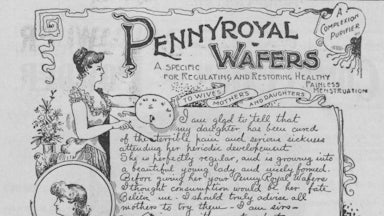 PENNYROYAL
WAFERS
A COMPLEXION PURIFIER
A SPECIFIC
FOR REGULATING AND RESTORING HEALTHY
PAINLESS
MENSTRUATION
TO WIVES MOTHERS AND DAUGHTERS
I am glad to tell that
my daughter has been cured
of the terrible pain and serious sickness
attending her periodic development
She is perfectly regular, and is growing into
a beautiful young lady and nicely formed.
Before giving her your PennyRoyal Wafers
I thought consumption would be her fate
Believe me - I should truly advise all
mothers to try them - I am